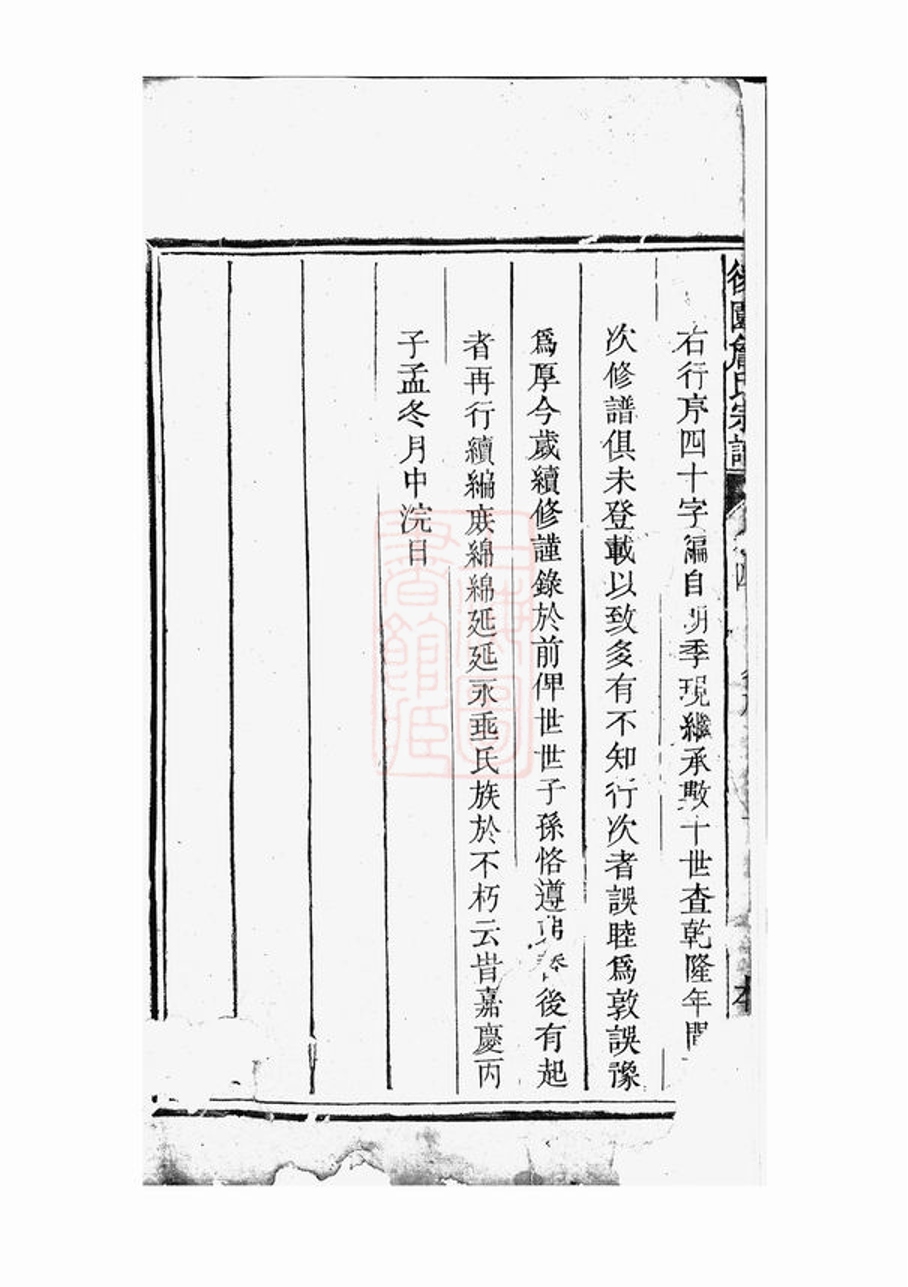 後園詹氏宗譜
四
右行序四十字編自明季現繼承數十世查乾隆年間
次修譜俱未登載以致多有不知行次者誤睦為敦誤豫
爲厚今歲續修謹錄於前俾世世子孫恪遵後有起
者再行續編庶綿綿延延永垂氏族於不朽云旹嘉慶丙
子孟冬月中浣日
上海圖
書館藏